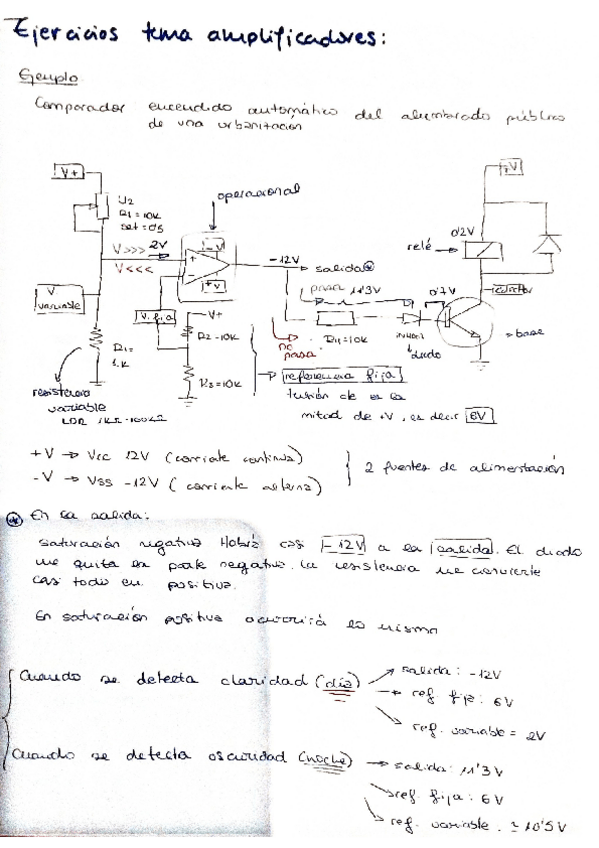 Ejercicios tema amplificadores:
Ejemplo
Comparador encendido automático del alumbrado público
de una urbanización
V+
U2
R1=10K
set=0'5
operacional
V>>> 2V
V<<<
+
-
-V
+V
-12V
salida
V. variable
V. fija
V+
R2-10K
R3=10K
R1=
1K
resistencia
variable
LDR 1KΩ-100KΩ
pasa 11'3V
no pasa
R4=10K
diodo
0'7V
relé
0'2V
+V
base
referencia fija
tensión de es la
mitad de +V, es decir 6V
+V → Vcc 12V (corriente continua)
-V → Vss -12V (corriente alterna)
2 fuentes de alimentación
En la salida:
saturación negativa Habrá casi -12V a la salida. El diodo
me quita la parte negativa. La resistencia me convierte
casi todo en positiva.
En saturación positiva ocurrirá lo mismo
Cuando se detecta claridad (día)
salida: -12V
ref. fija: 6V
ref. variable = 2V
Cuando se detecta oscuridad (noche)
salida: 11'3V
ref. fija: 6V
ref. variable. ≃ 10'5V